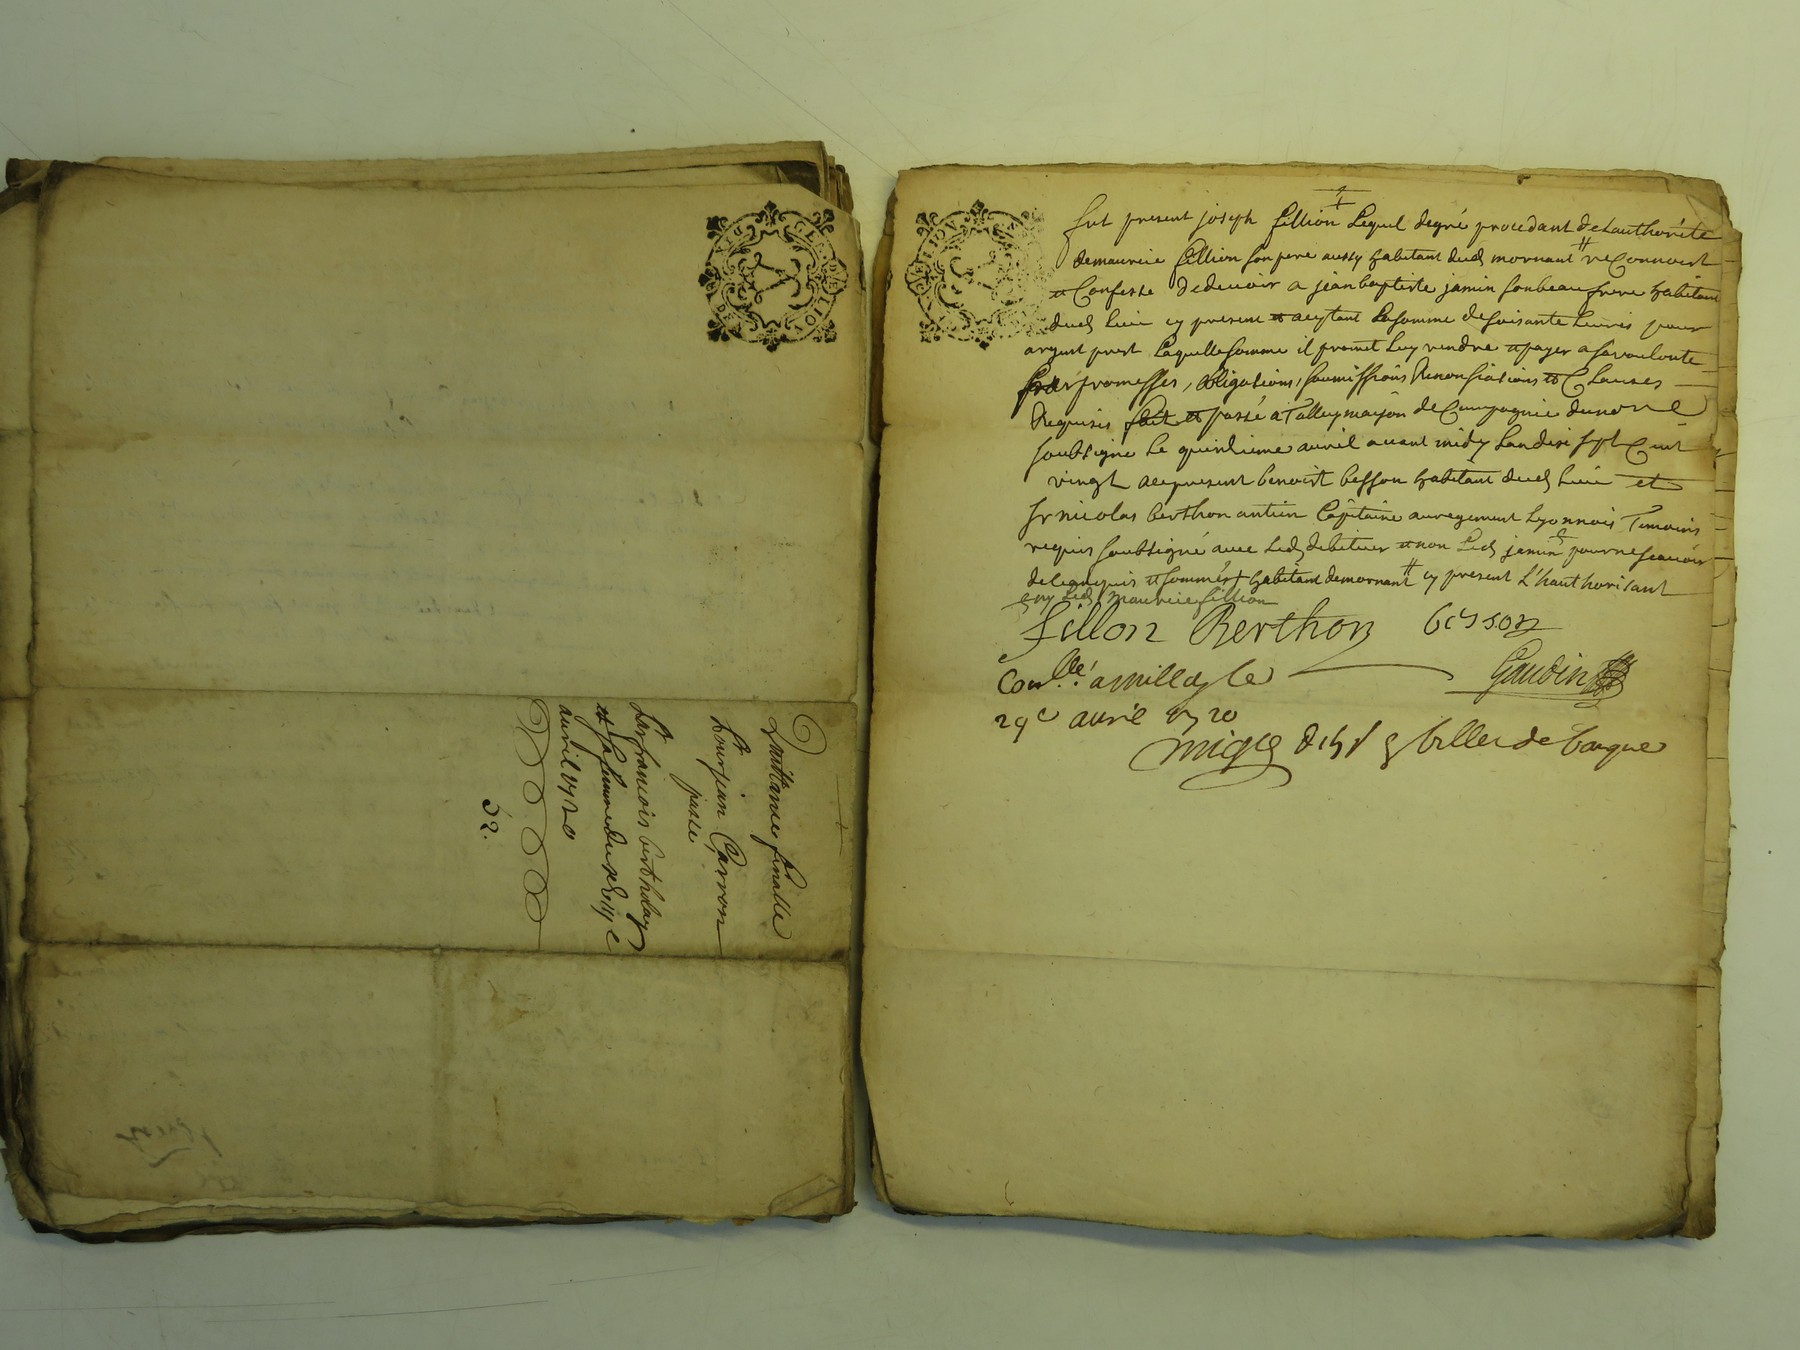 Quittance finalle
Pr Jean Garron
passé
Par francois bertholay
et sa femme du
avril 1720
52.
fut present joseph fillion lequel degré procedant de Lauthorité
demaurice fillion son pere aussy habitant dud mornant reConnoist
et Confesse dedevoir a jean baptiste jamin son beau frere habitant
dud lieu cy present et aceptant La somme de soisante Livres pour
argent prest Laquelle somme il promet Luy rendre et payer a sa voulonte
par promesses, obligations, soumissions Renonsiations et Clauses
Requises fait et passé a Talluy maison de Campagnie du no.re
soubsigné le quinsieme avril avant midy Lan dixsept Cent
vingt ace present benoist besson habitant dud lieu et
sr nicolas berthon antien Capitaine au regement Lyonnois Temoins
requis soubsigné avec led debiteur et non led jamin pour ne scavoir
de ce enquis et sommés + habitant de mornant # cy present L'hauthorisant
led maurice fillion
fillon Berthon besson
Conllé a millery le
Gaudin
29e avril 1720
billes de banque